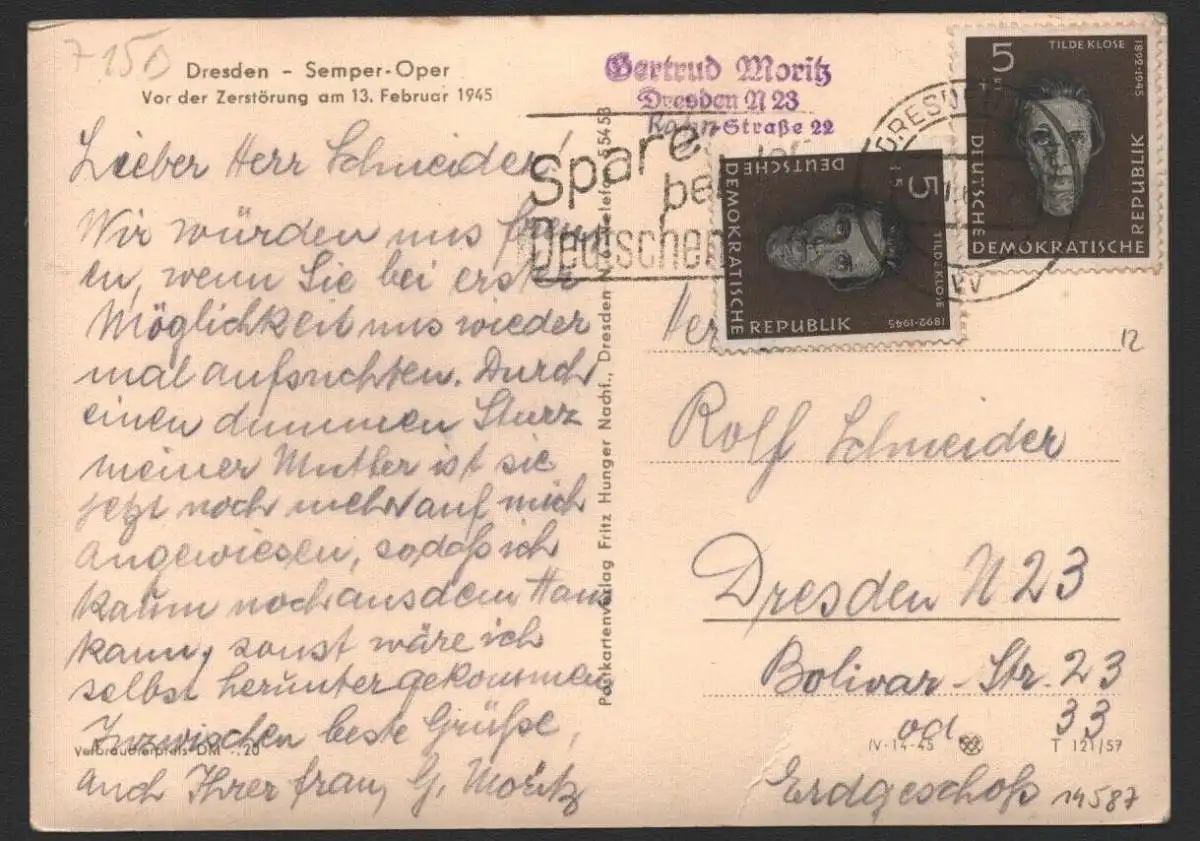 7150
Dresden – Semper-Oper
Vor der Zerstörung am 13. Februar 1945
Lieber Herr Schneider!
Wir würden uns freu
en, wenn Sie bei erster
Möglichkeit uns wieder
mal aufsuchten. Durch
einen dummen Sturz
meiner Mutter ist sie
jetzt noch mehr auf mich
angewiesen, sodaß ich
kaum noch aus dem Haus
kann, sonst wäre ich
selbst heruntergekommen
Inzwischen beste Grüße,
Verbraucherpreis DM -.20
auch Ihrer Frau, G. Moritz
Postkartenverlag Fritz Hunger Nachf., Dresden N
5458
Gertrud Moritz
Dresden N 23
Straße 22
Spare
be
Deutschen
DRESDEN
5
TILDE KLOSE
1892-1945
DEUTSCHE
DEMOKRATISCHE
REPUBLIK
5
TILDE KLOSE
1892-1945
DEUTSCHE
DEMOKRATISCHE
REPUBLIK
Her
12
Rolf Schneider
Dresden N 23
Bolivar-Str. 23
od. 33
IV-14-45
T 121/57
Erdgeschoß
14587